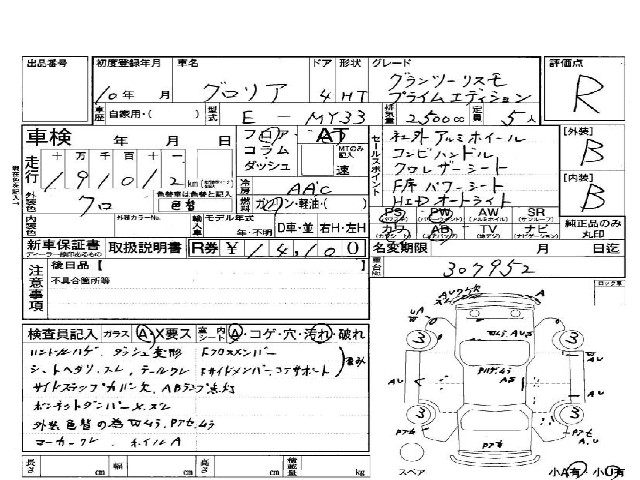 出品番号 初度登録年月 車名 ドア 形状 グレード 評価点
10年 月 グロリア 4 HT グランツーリスモ プライムエディション R
車歴 自家用・( ) 型式 E-MY33 排気量 2500cc 定員 5人
車検 年 月 日 フロア AT セールスポイント 社外アルミホイール [外装] B
走行 十万 万 千 百 十 一 コラム MTのみ記入 コンビハンドル
191012 km ダッシュ 速 クロレザーシート [内装] B
冷房 AAC F席パワーシート
外装色 クロ 色替車は色替と記入 色替 燃料 ガソリン・軽油・( ) HIDオートライト
内装色 外装カラーNo. 輸入車 モデル年式 年・不明 D車・並 右H・左H PS PW AW SR
カワ AB TV ナビ 純正品のみ丸印
新車保証書 取扱説明書 R券 ¥14,100 名変期限 月 日迄
注意事項 後日品【 】 車台No 307952
不具合箇所等 ロック車
検査員記入 ガラス A・X要ス 室内 シート A・コゲ・穴・汚れ・破れ
ハンドルハゲ、ダッシュ変形 Fクロスメンバー
シートヘタリ、スレ、テールワレ Fサイドメンバー、コアサポート
サイドステップカバー欠、ABランプ点灯
ボンネットダンパー×、スレ
外装色替の為W43、Pアセ43
マーカーワレ ホイルA
長さ cm 幅 cm 高さ cm 積載量 kg
スペア 小A有 小U有